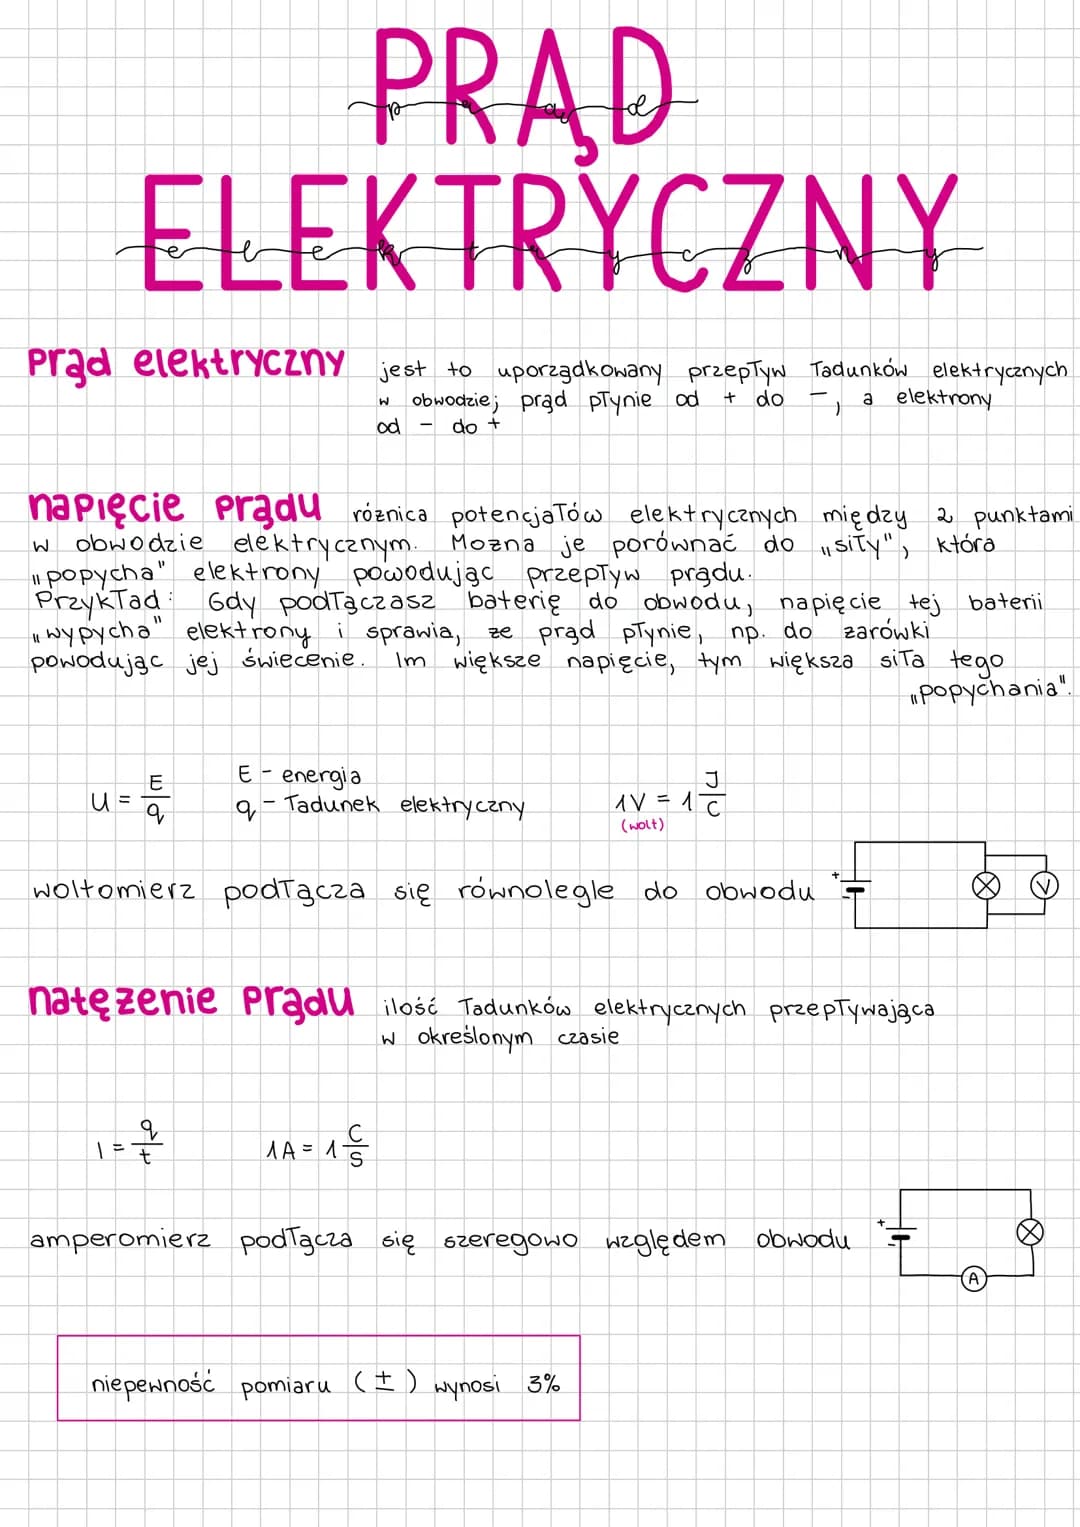 PRĄD
prąd
ELEKTRYCZNY
elektryczny
prąd elektryczny jest to uporządkowany przepływ ładunków elektrycznych
w obwodzie; prąd płynie od + do -, a elektrony
od - do +
napięcie prądu różnica potencjałów elektrycznych między 2 punktami
w obwodzie elektrycznym. Mozna je porównać do „siły", która
„popycha" elektrony powodując przepływ prądu.
Przykład: Gdy podłączasz baterię do obwodu, napięcie tej baterii
„wypycha" elektrony i sprawia, ze prąd płynie, np. do zarówki
powodując jej świecenie. Im większe napięcie, tym większa siła tego
„popychania".
U = E/q
E - energia
q - ładunek elektryczny
1V = 1 J/C
(wolt)
woltomierz podłącza się równolegle do obwodu
+
-
V
natęzenie prądu ilość ładunków elektrycznych przepływająca
w określonym czasie
I = q/t
1A = 1 C/s
amperomierz podłącza się szeregowo względem obwodu
+
-
A
niepewność pomiaru (±) wynosi 3%